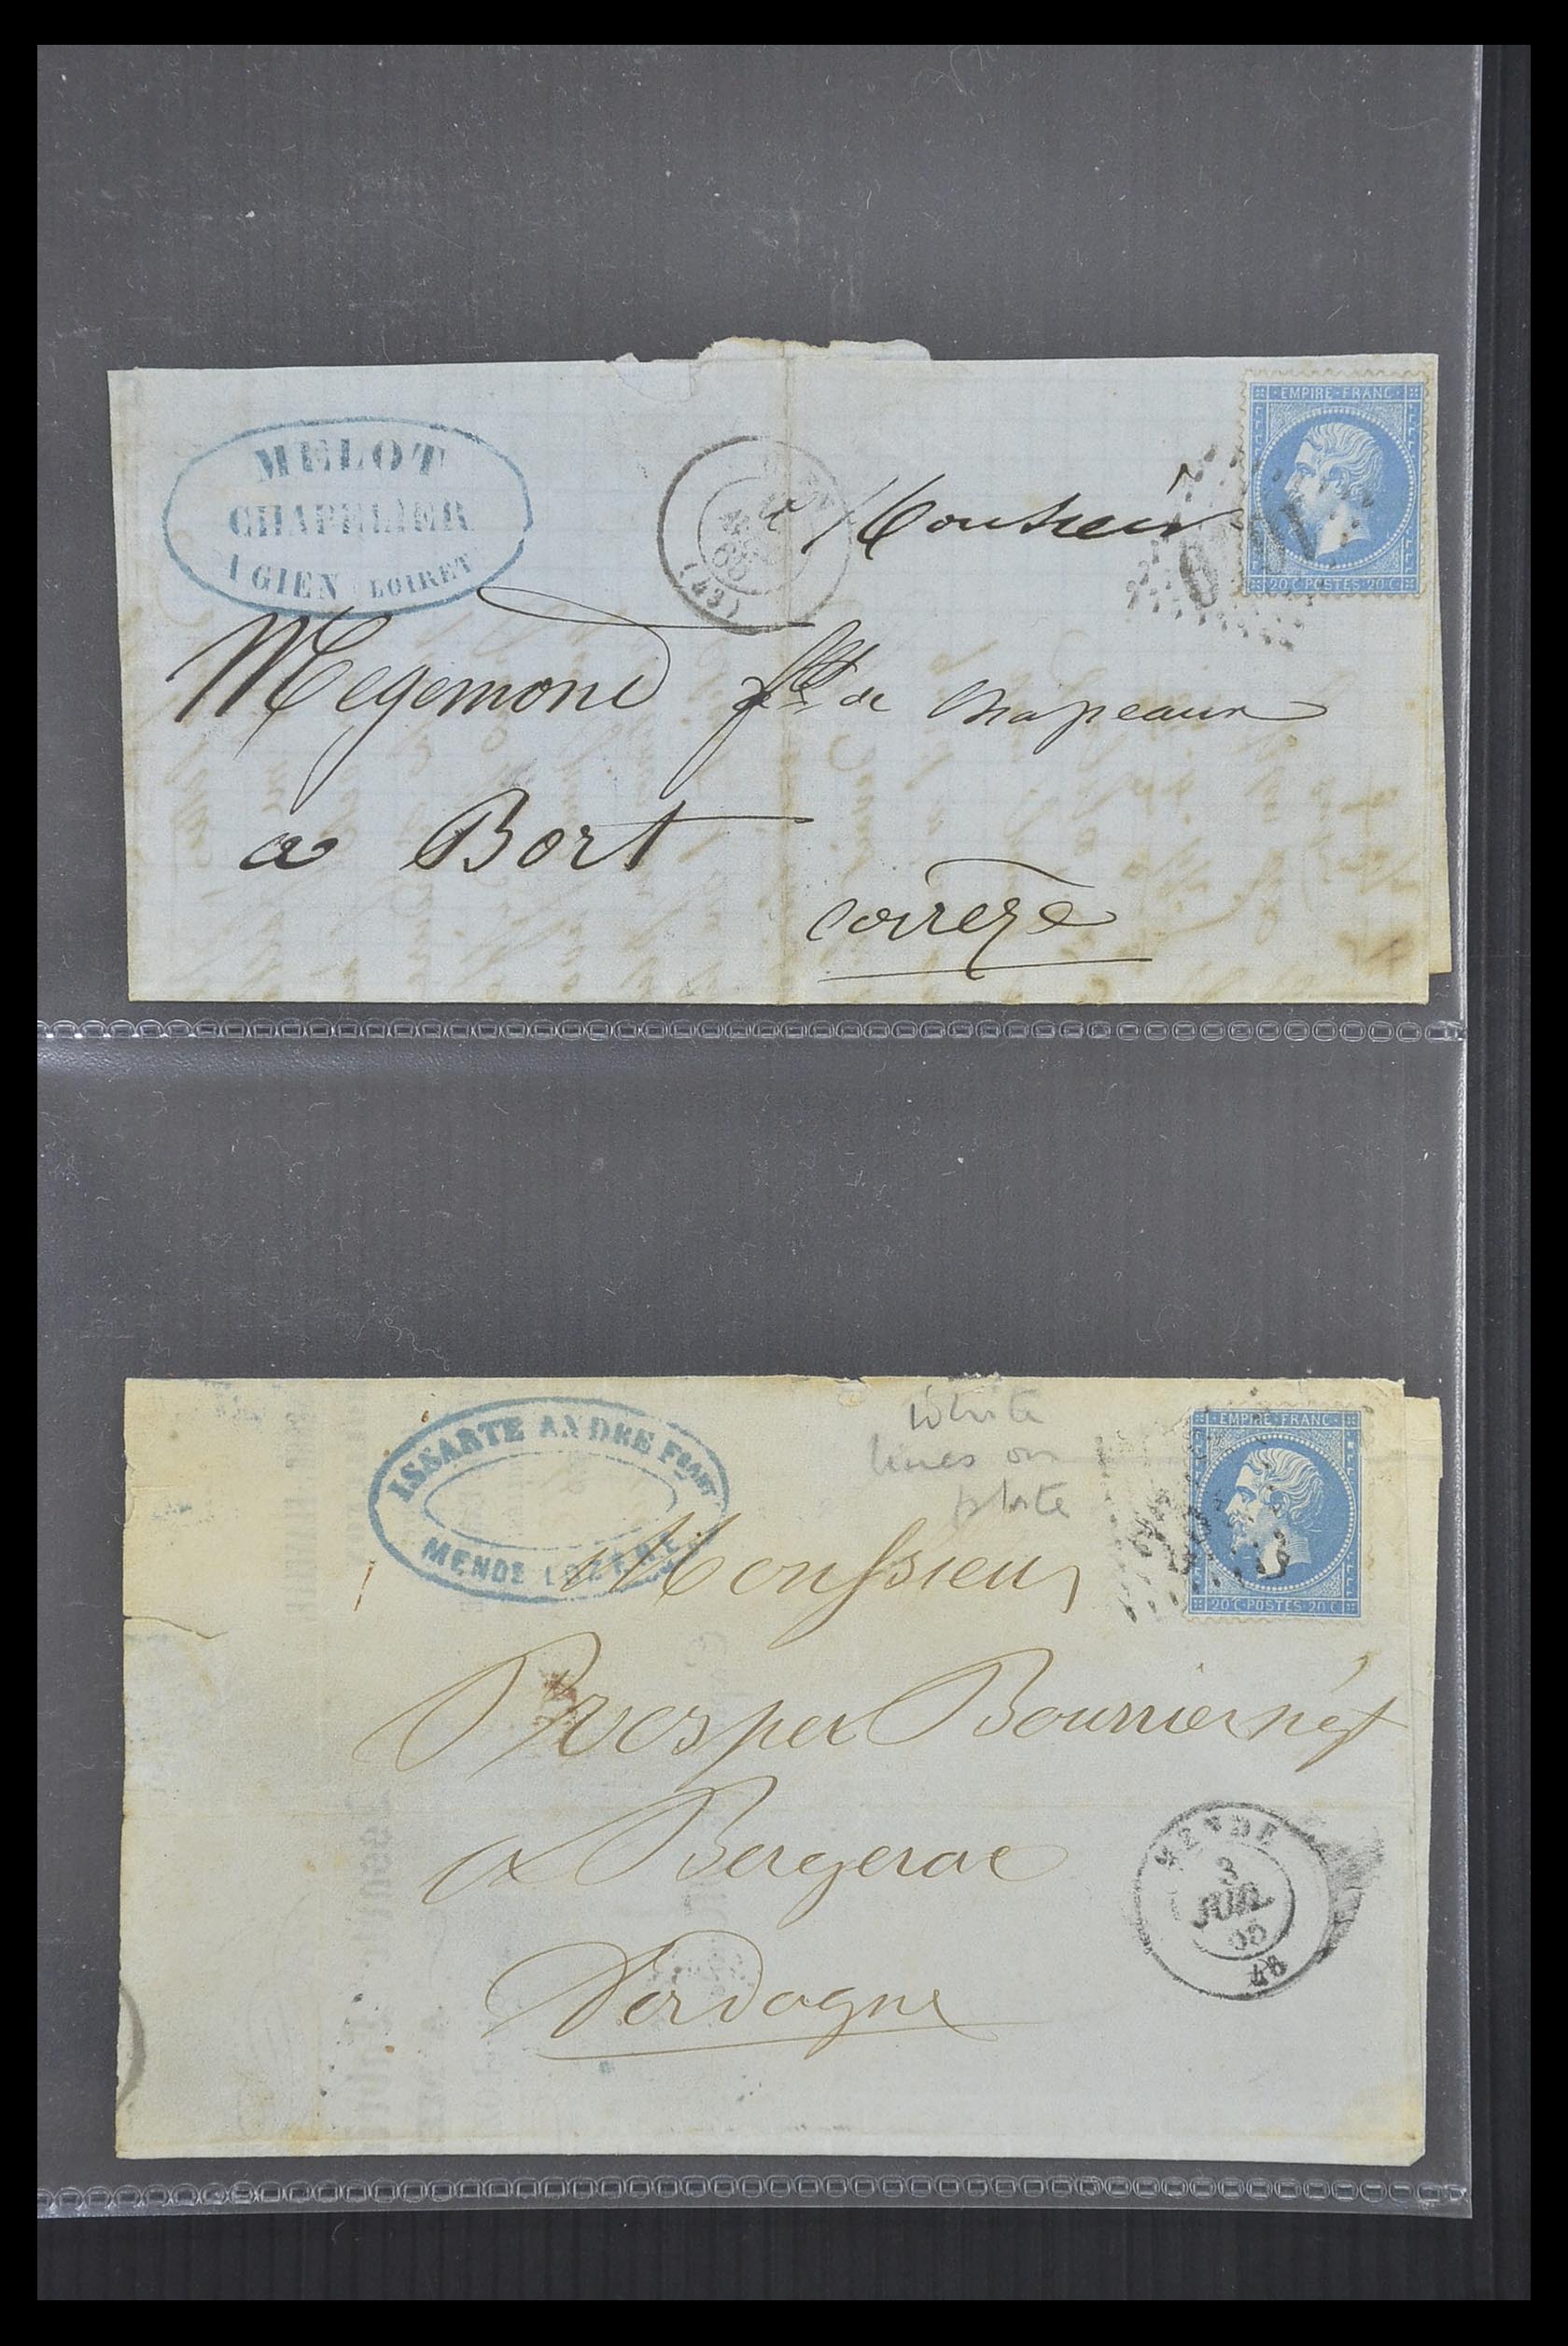 MELOT
CHAPELIER
A GIEN (LOIRET
(43)
68
EMPIRE·FRANC
20 C·POSTES·20 C
a Monsieur
Megemond fbt de Chapeaux
a Bort
Corrèze
ISSARTE ANDRE
MENDE LOZERE
White
lines on
plate
EMPIRE·FRANC
20 C·POSTES·20 C
Monsieur
Prosper
a Bergerac
Dordogne
MENDE
3
JUIL
65
48